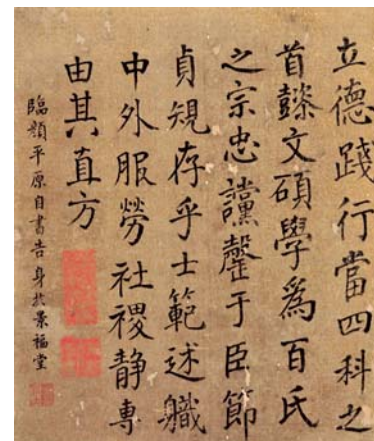 立德踐行當四科之
首懿文碩學爲百氏
之宗忠讜罄于臣節
貞規存乎士範述軄
中外服勞社稷静專
由其直方
臨顔平原自書告身扵景福堂